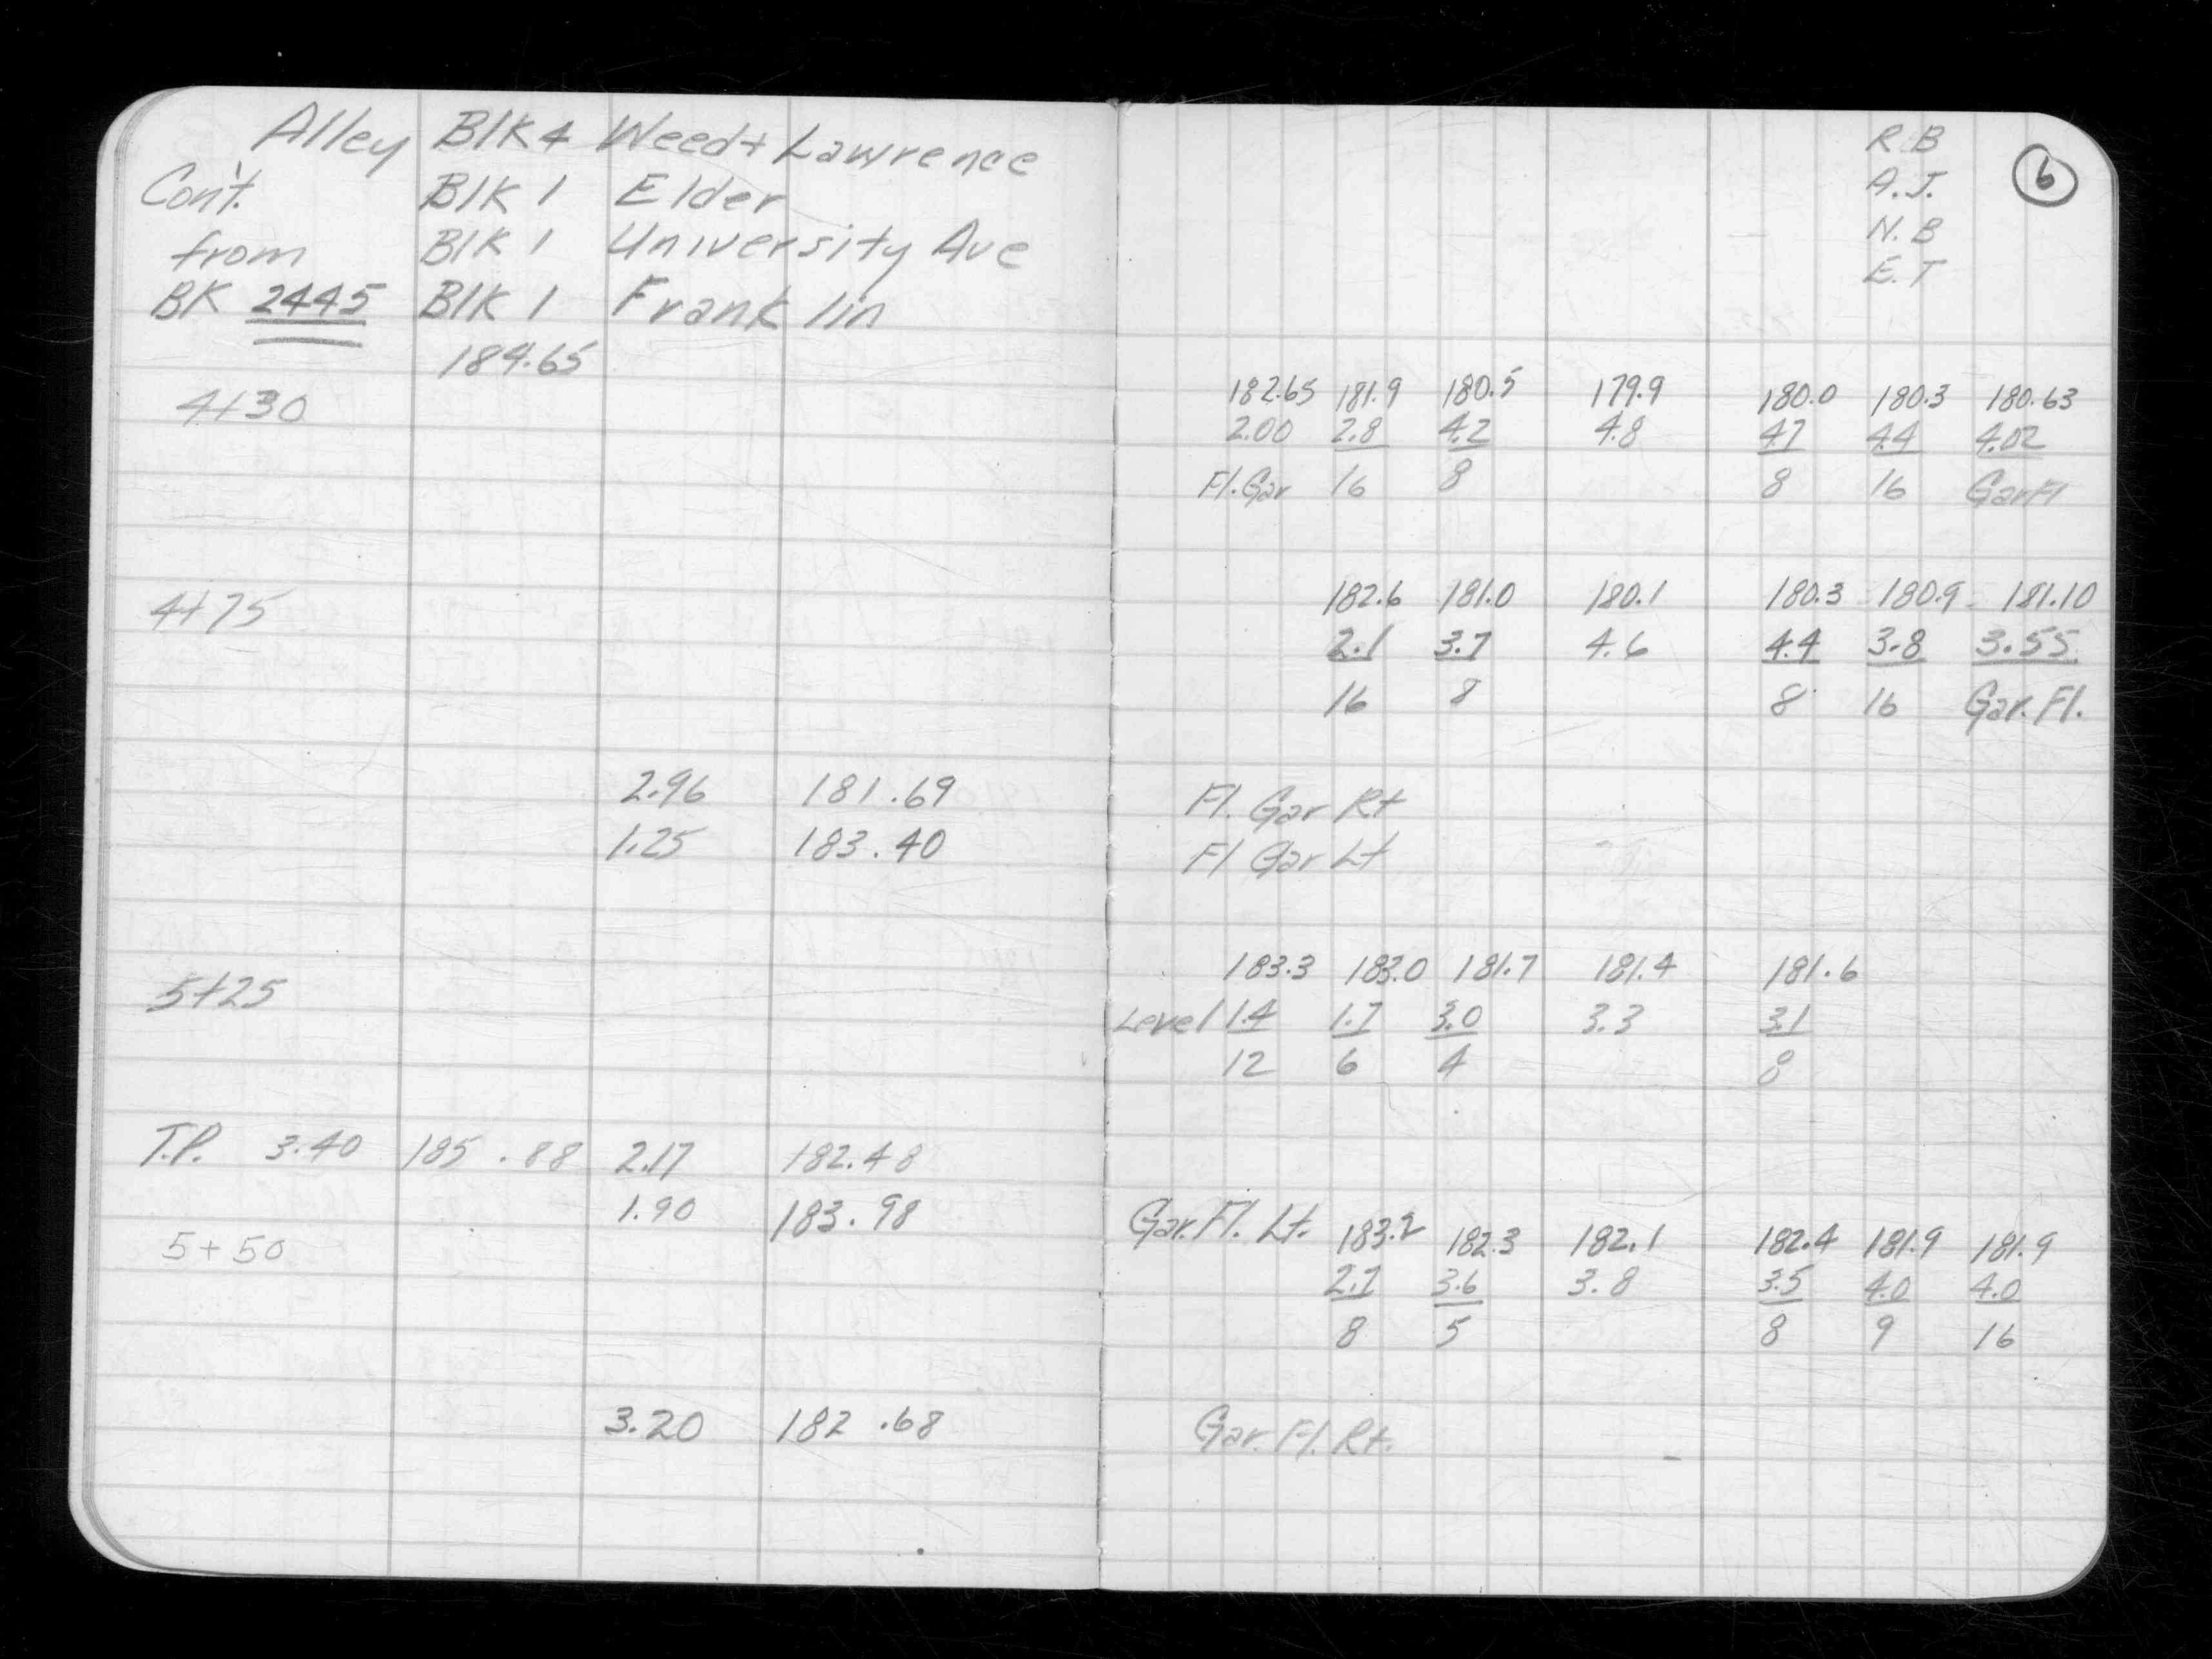 Alley Blk 4 Weed + Lawrence
Con't. Blk 1 Elder
from Blk 1 University Ave
BK 2445 Blk 1 Franklin
184.65
4+30
4+75
2.96 181.69
1.25 183.40
5+25
T.P. 3.40 185.88 2.17 182.48
1.90 183.98
5+50
3.20 182.68
R B
A.J.
N.B
E.T
6
182.65 181.9 180.5 179.9 180.0 180.3 180.63
2.00 2.8 4.2 4.8 4.7 4.4 4.02
Fl.Gar 16 8 8 16 Gar Fl
182.6 181.0 180.1 180.3 180.9 181.10
2.1 3.7 4.6 4.4 3.8 3.55
16 8 8 16 Gar. Fl.
Fl. Gar Rt
Fl Gar Lt
183.3 183.0 181.7 181.4 181.6
Level 1.4 1.7 3.0 3.3 3.1
12 6 4 8
Gar. Fl. Lt. 183.2 182.3 182.1 182.4 181.9 181.9
2.7 3.6 3.8 3.5 4.0 4.0
8 5 8 9 16
Gar. Fl. Rt.